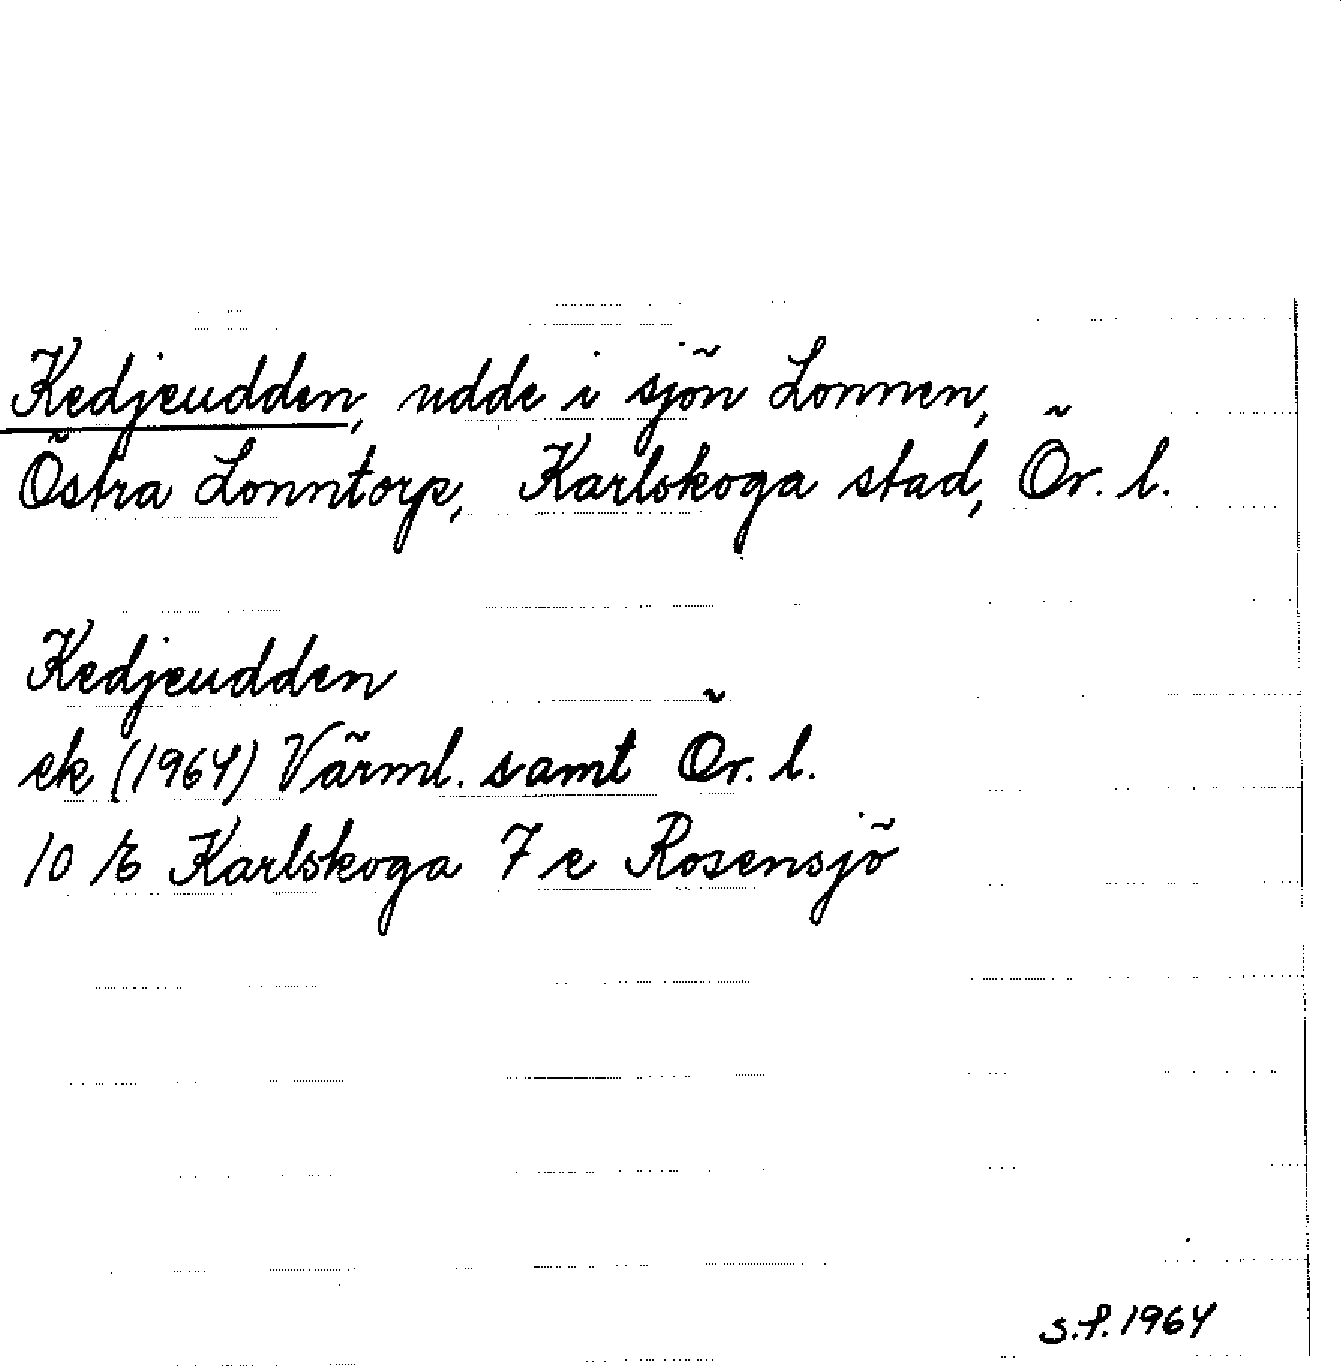 Kedjeudden, udde i sjön Lonnen,
Östra Lonntorp, Karlskoga stad, Ör. l.
Kedjeudden
ek (1964) Värml. samt Ör. l.
10 E Karlskoga 7 e Rosensjö
S.f. 1964